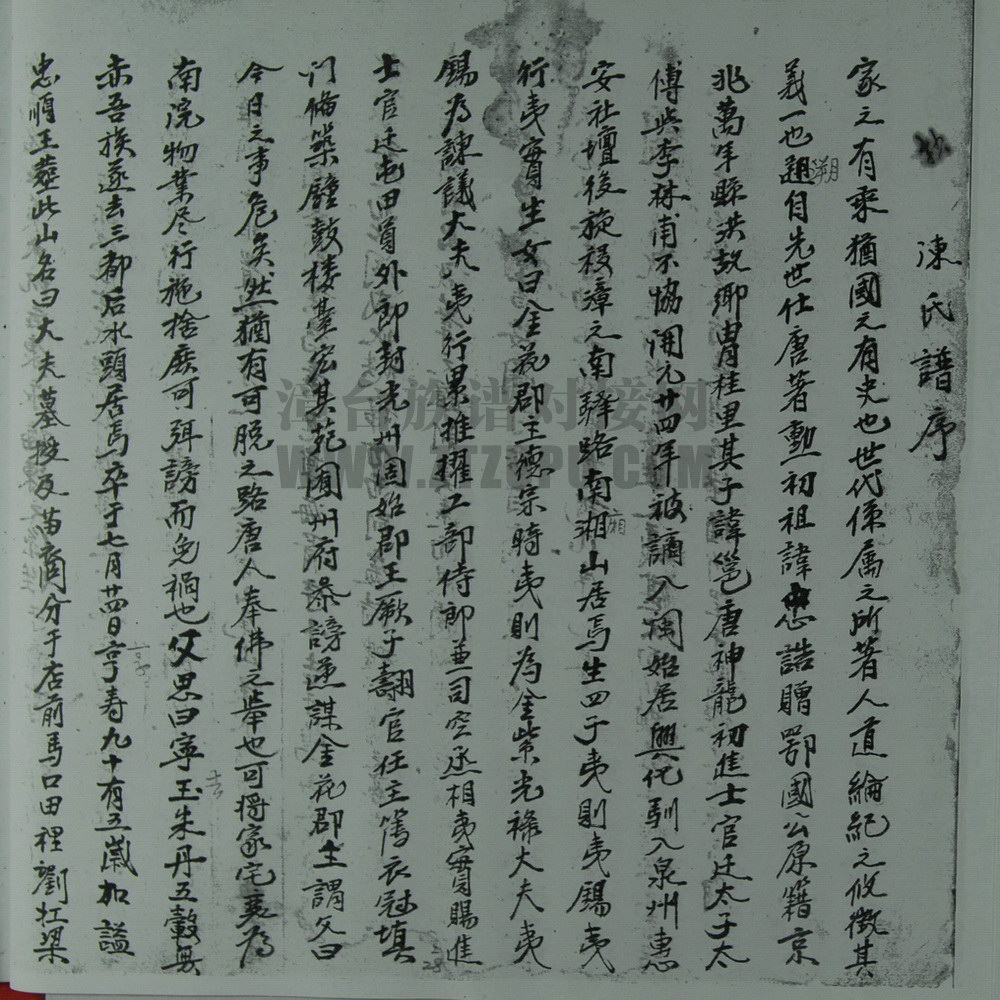 陳氏譜序
家之有乘猶國之有史也世代係属之所著人道綸紀之攸徵其
義一也遡自先世仕唐著勳初祖諱忠誥贈鄂國公原籍京
兆萬年縣洪故鄉胄桂里其子諱邕唐神龍初進士官迁太子太
傅與李林甫不恊開元廿四年被謫入闽始居興化馴入泉州惠
安社壇後旋移漳之南驛路南湘山居焉生四子夷則夷錫夷
行夷實生女曰金花郡主德宗時夷則為金紫光禄大夫夷
錫为諫議大夫夷行累推擢工部侍郎兼司空丞相夷實賜進
士官迁屯田員外郎封光州固始郡王厥子翻官任主簿衣冠填
门脩築廳鼓楼臺宏其苑囿州府忝謗逆謀金花郡主謂父曰
今日之事危矣然猶有可脱之路唐人奉佛之举也可将家宅奏为
南浣物業尽行施捨庶可弭謗而免禍也父思曰寧玉朱丹五穀無
赤吾族遂去三都后水頭居焉卒于七月廿四日亨寿九十有五歲加謚
忠順王葬此山名曰大夫墓拔及苗裔分于店前馬口田裡劉扛梁
朔
廂
享
去
28
漳台族谱对接网
WWW.ZTZUPU.COM